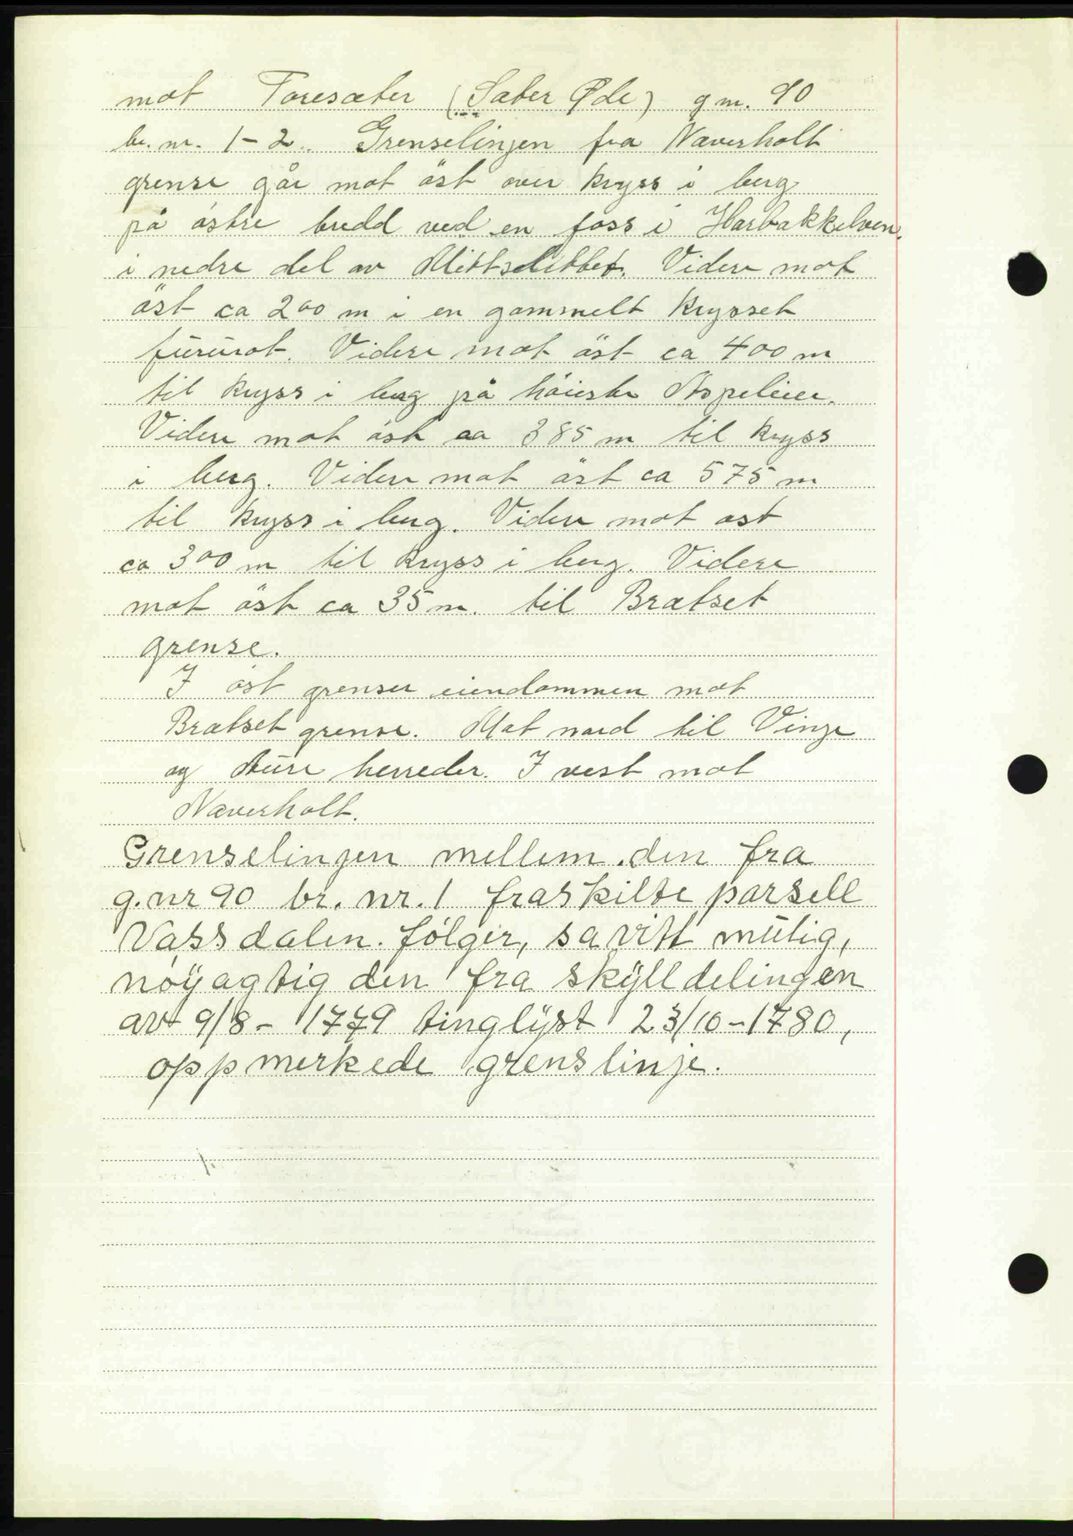 mot Toresæter (Sæter Øde) g nr. 90
br. nr. 1-2. Grenselinjen fra Næverholt
grense går mot öst over kryss i berg
på östre bredd ved en foss i Harbakkelven.
i nedre del av Mittslettet. Videre mot
öst ca 200 m i en gammelt krysset
fururot. Videre mot öst ca 400 m
til kryss i berg på höieste Aspeleier.
Videre mot öst ca 385 m til kryss
i berg. Videre mot öst ca 575 m
til kryss i berg. Videre mot ost
ca 300 m til kryss i berg. Videre
mot öst ca 35 m. til Brætset
grense.
I öst grenser eiendommen mot
Brætset grense. Mot nord til Vinje
og Aure herreder. I vest mot
Næverholt.
Grenselinjen mellem den fra
g.nr 90 br. nr. 1 fraskilte parsell
Vassdalen. fölger, sa vitt mülig,
nöyagtig den fra skÿlldelingen
av 9/8- 1779 tinglÿst 23/10-1780,
oppmerkede grenslinje.